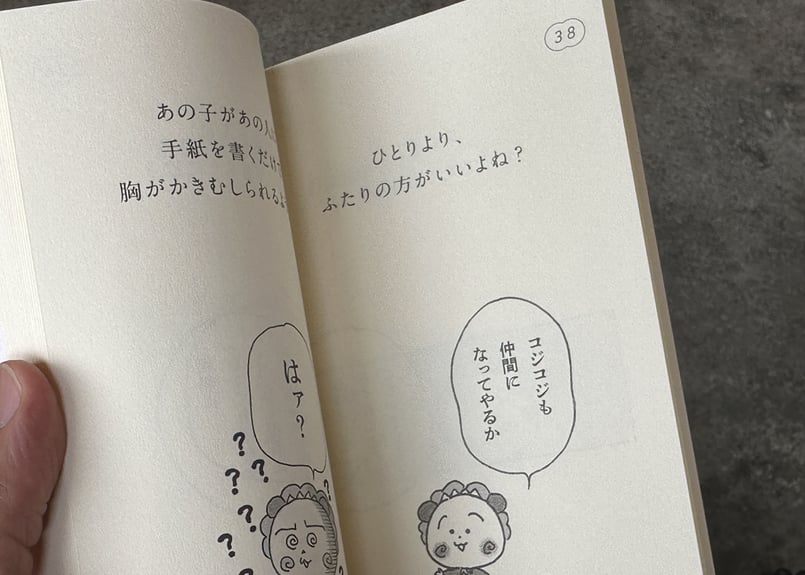 あの子があの人
手紙を書くだけで
胸がかきむしられるよ
はァ?
? ? ? ? ? ? ?
38
ひとりより、
ふたりの方がいいよね?
コジコジも
仲間に
なってやるか